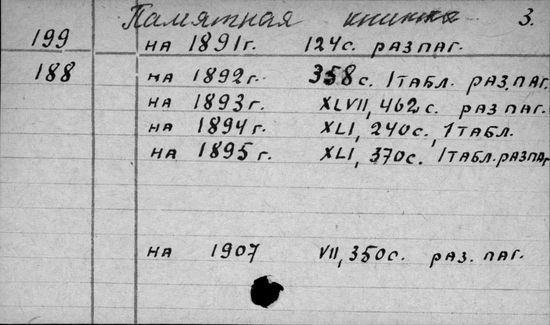 Памятная книжка 3.
199 на 1891г. 124с. разпаг.
188 на 1892г. 358с. 1табл. раз.паг.
на 1893г. XLVII, 462с. раз паг.
на 1894г. XLI, 240с. 1табл.
на 1895г. XLI, 370с. 1табл.разпаг
на 1907 VII, 350с. раз. паг.